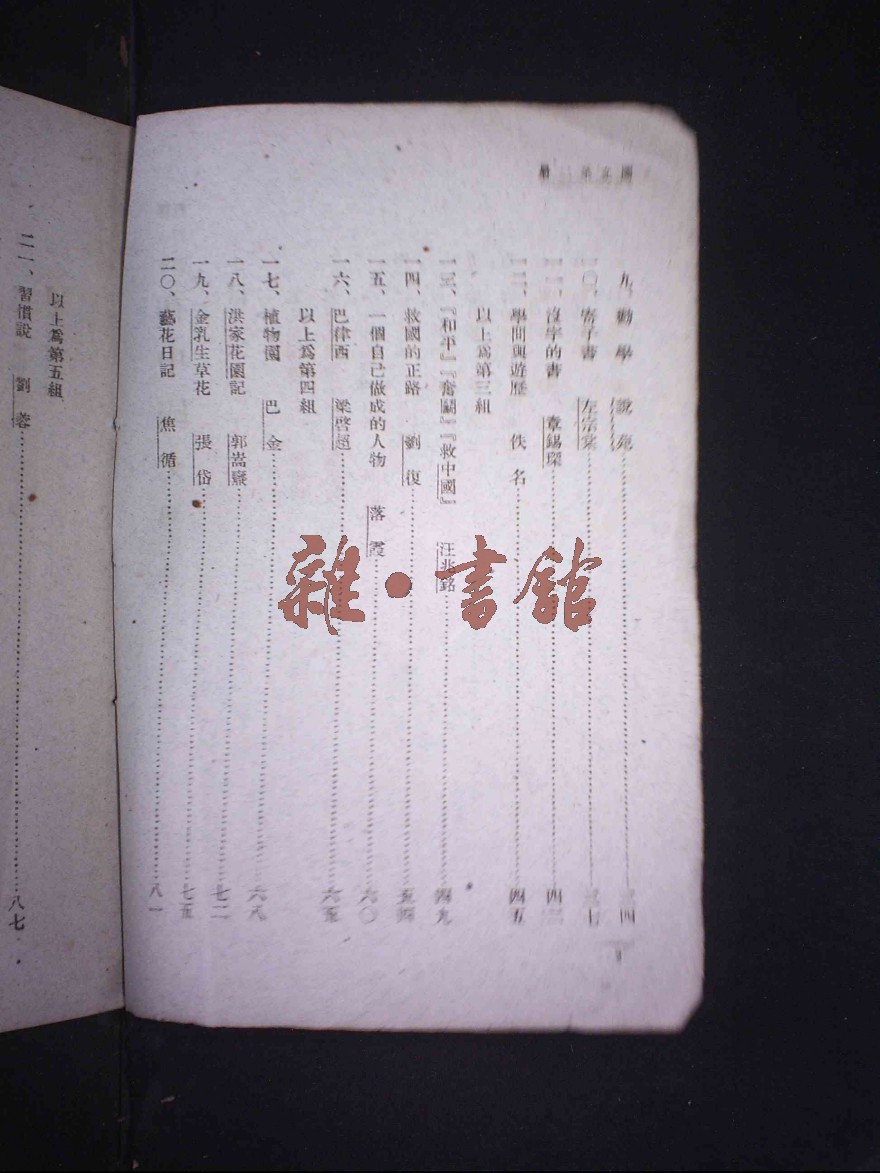 國文第 冊
九、勸學 說苑 三四
一〇、寄子書 左宗棠 三七
一一、沒字的書 章錫琛 四
一二、學問與遊歷 佚名 四五
以上爲第三組
一三、『和平』『奮鬭』『救中國』 汪兆銘 四九
一四、救國的正路 劉復 五四
一五、一個自己做成的人物 落霞 六〇
一六、巴律西 梁啓超 六五
以上爲第四組
一七、植物園 巴金 六八
一八、洪家花園記 郭嵩燾 七二
一九、金乳生草花 張岱 七五
二〇、藝花日記 焦循 八一
以上爲第五組
二一、習慣說 劉蓉 八七
雜·書館